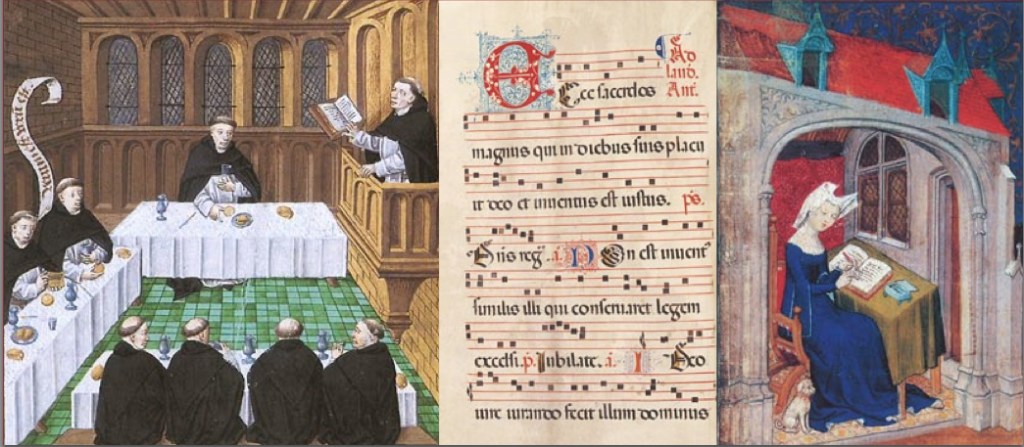 Ad
laud.
Ecce sacerdos Ant.
magnus qui in diebus suis placu
it deo et inuentus est iustus. ps.
Dns reg. a. Non est inuent
similis illi qui conseruaret legem
excelsi. p. Jubilate. a. Ideo
iure iurando fecit illum dominus